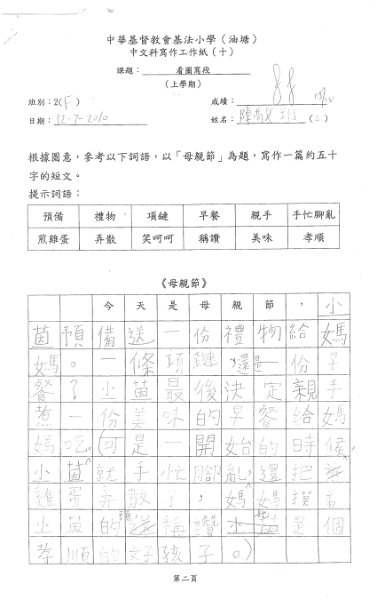 中華基督教會基法小學（油塘）
中文科寫作工作紙（十）
課題：看圖寫段
（上學期）
班別：2(F) 成績：88
日期：12-7-2010 姓名：陳 (2)
根據圖意，參考以下詞語，以「母親節」為題，寫作一篇約五十
字的短文。
提示詞語：
預備 禮物 項鏈 早餐 親手 手忙腳亂
煎雞蛋 弄散 笑呵呵 稱讚 美味 孝順
《母親節》
今天是母親節，小
茵預備送一份禮物給媽
媽。一條項鏈還是一份早
餐？小茵最後決定親手
煮一份美味的早餐給媽
媽吃。可是一開始的時候，
小茵就手忙腳亂，還把
雞蛋弄散了，媽媽摸着
小茵的頭 稱讚 她是個
孝順的女孩子。
第二頁